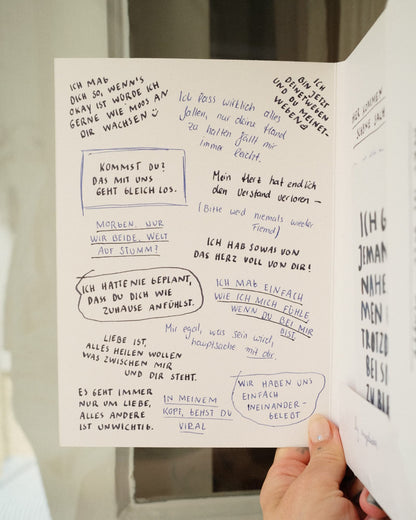 ICH MAG
DICH SO, WENN'S
OKAY IST WÜRDE ICH
GERNE WIE MOOS AN
DIR WACHSEN
ICH
BIN JETZT
DEINETWEGEN
UND DU MEINET-
WEGEN
Ich lass wirklich alles
fallen, nur deine Hand
zu halten fällt mir
immer leicht.
KOMMST DU?
DAS MIT UNS
GEHT GLEICH LOS.
Mein Herz hat endlich
den Verstand verloren –
(Bitte werd niemals wieder
fremd)
MORGEN, NUR
WIR BEIDE, WELT
AUF STUMM?
ICH HAB SOWAS VON
DAS HERZ VOLL VON DIR!
ICH HATTE NIE GEPLANT,
DASS DU DICH WIE
ZUHAUSE ANFÜHLST.
ICH MAG EINFACH
WIE ICH MICH FÜHLE,
WENN DU BEI MIR
BIST
Mir egal, was sein wird,
hauptsache mit dir.
LIEBE IST,
ALLES HEILEN WOLLEN
WAS ZWISCHEN MIR
UND DIR STEHT.
ES GEHT IMMER
NUR UM LIEBE,
ALLES ANDERE
IST UNWICHTIG.
IN MEINEM
KOPF, GEHST DU
VIRAL
WIR HABEN UNS
EINFACH
INEINANDER-
GELEBT
ICH G
JEMAN
NAHE
MEN
TROTZD
BEI S
ZU BL